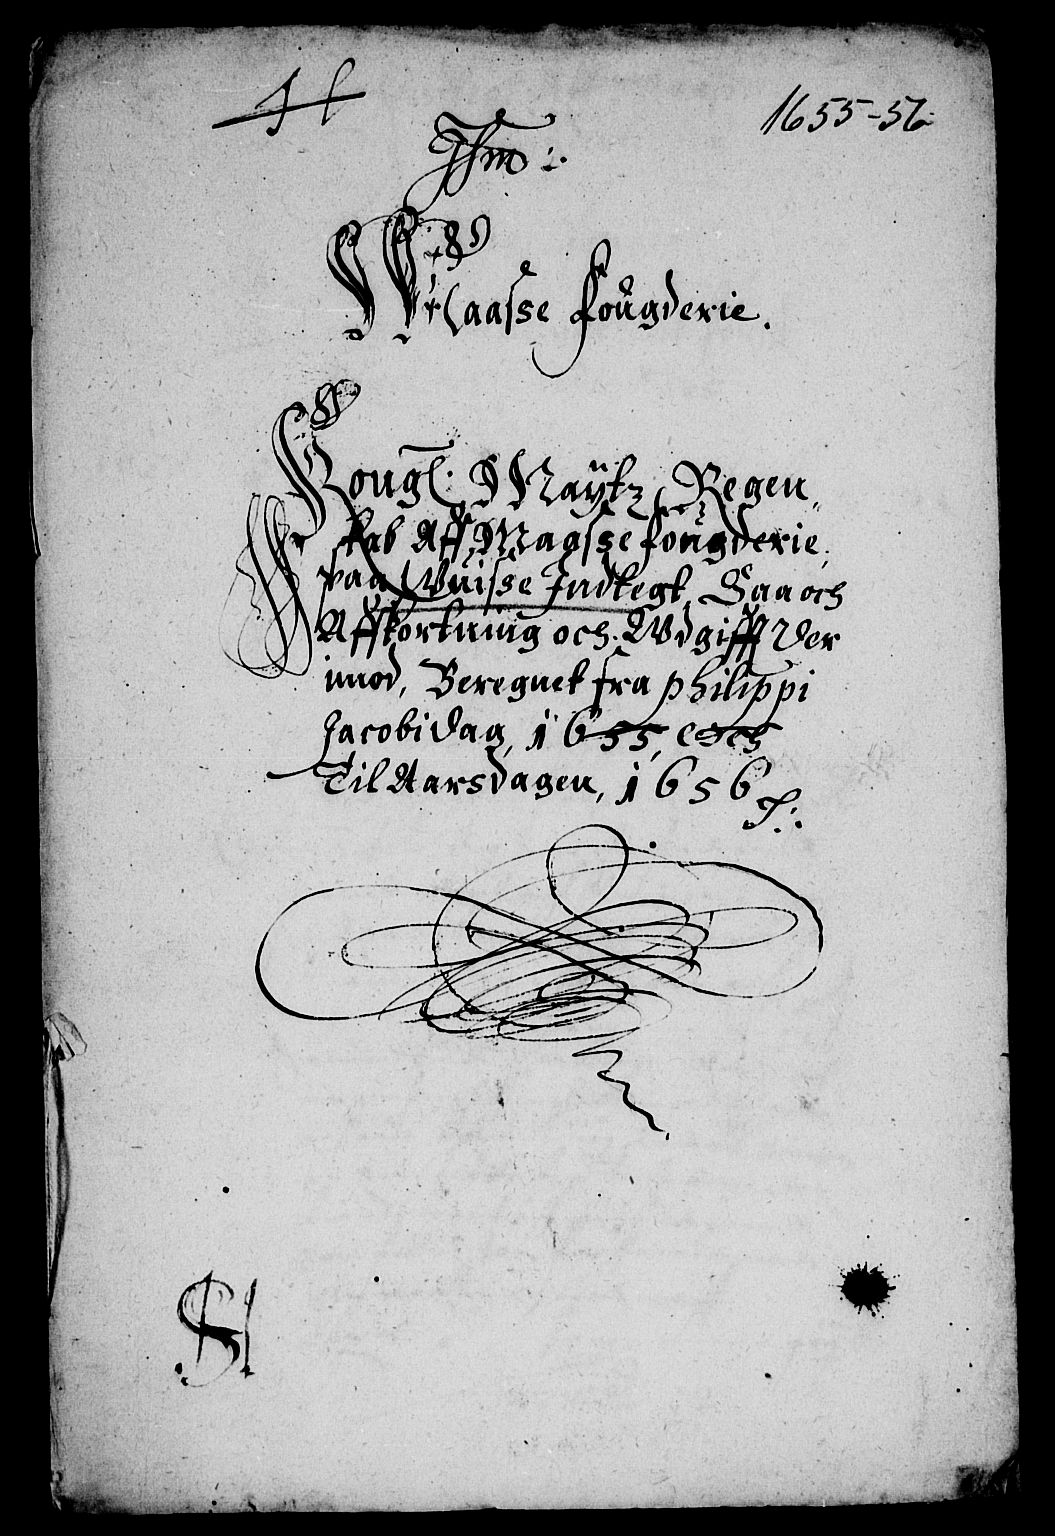 1655-56
Maasse fougderie.
Kongl. Maÿtz Regen
skab Aff Maasse fougderie,
paa Wuisse Indtegt, Saa och
Affkortning och Wdgifft der
imod, Beregnet fra philippi
Jacobi dag, 1655, och
Til Aarsdagen, 1656